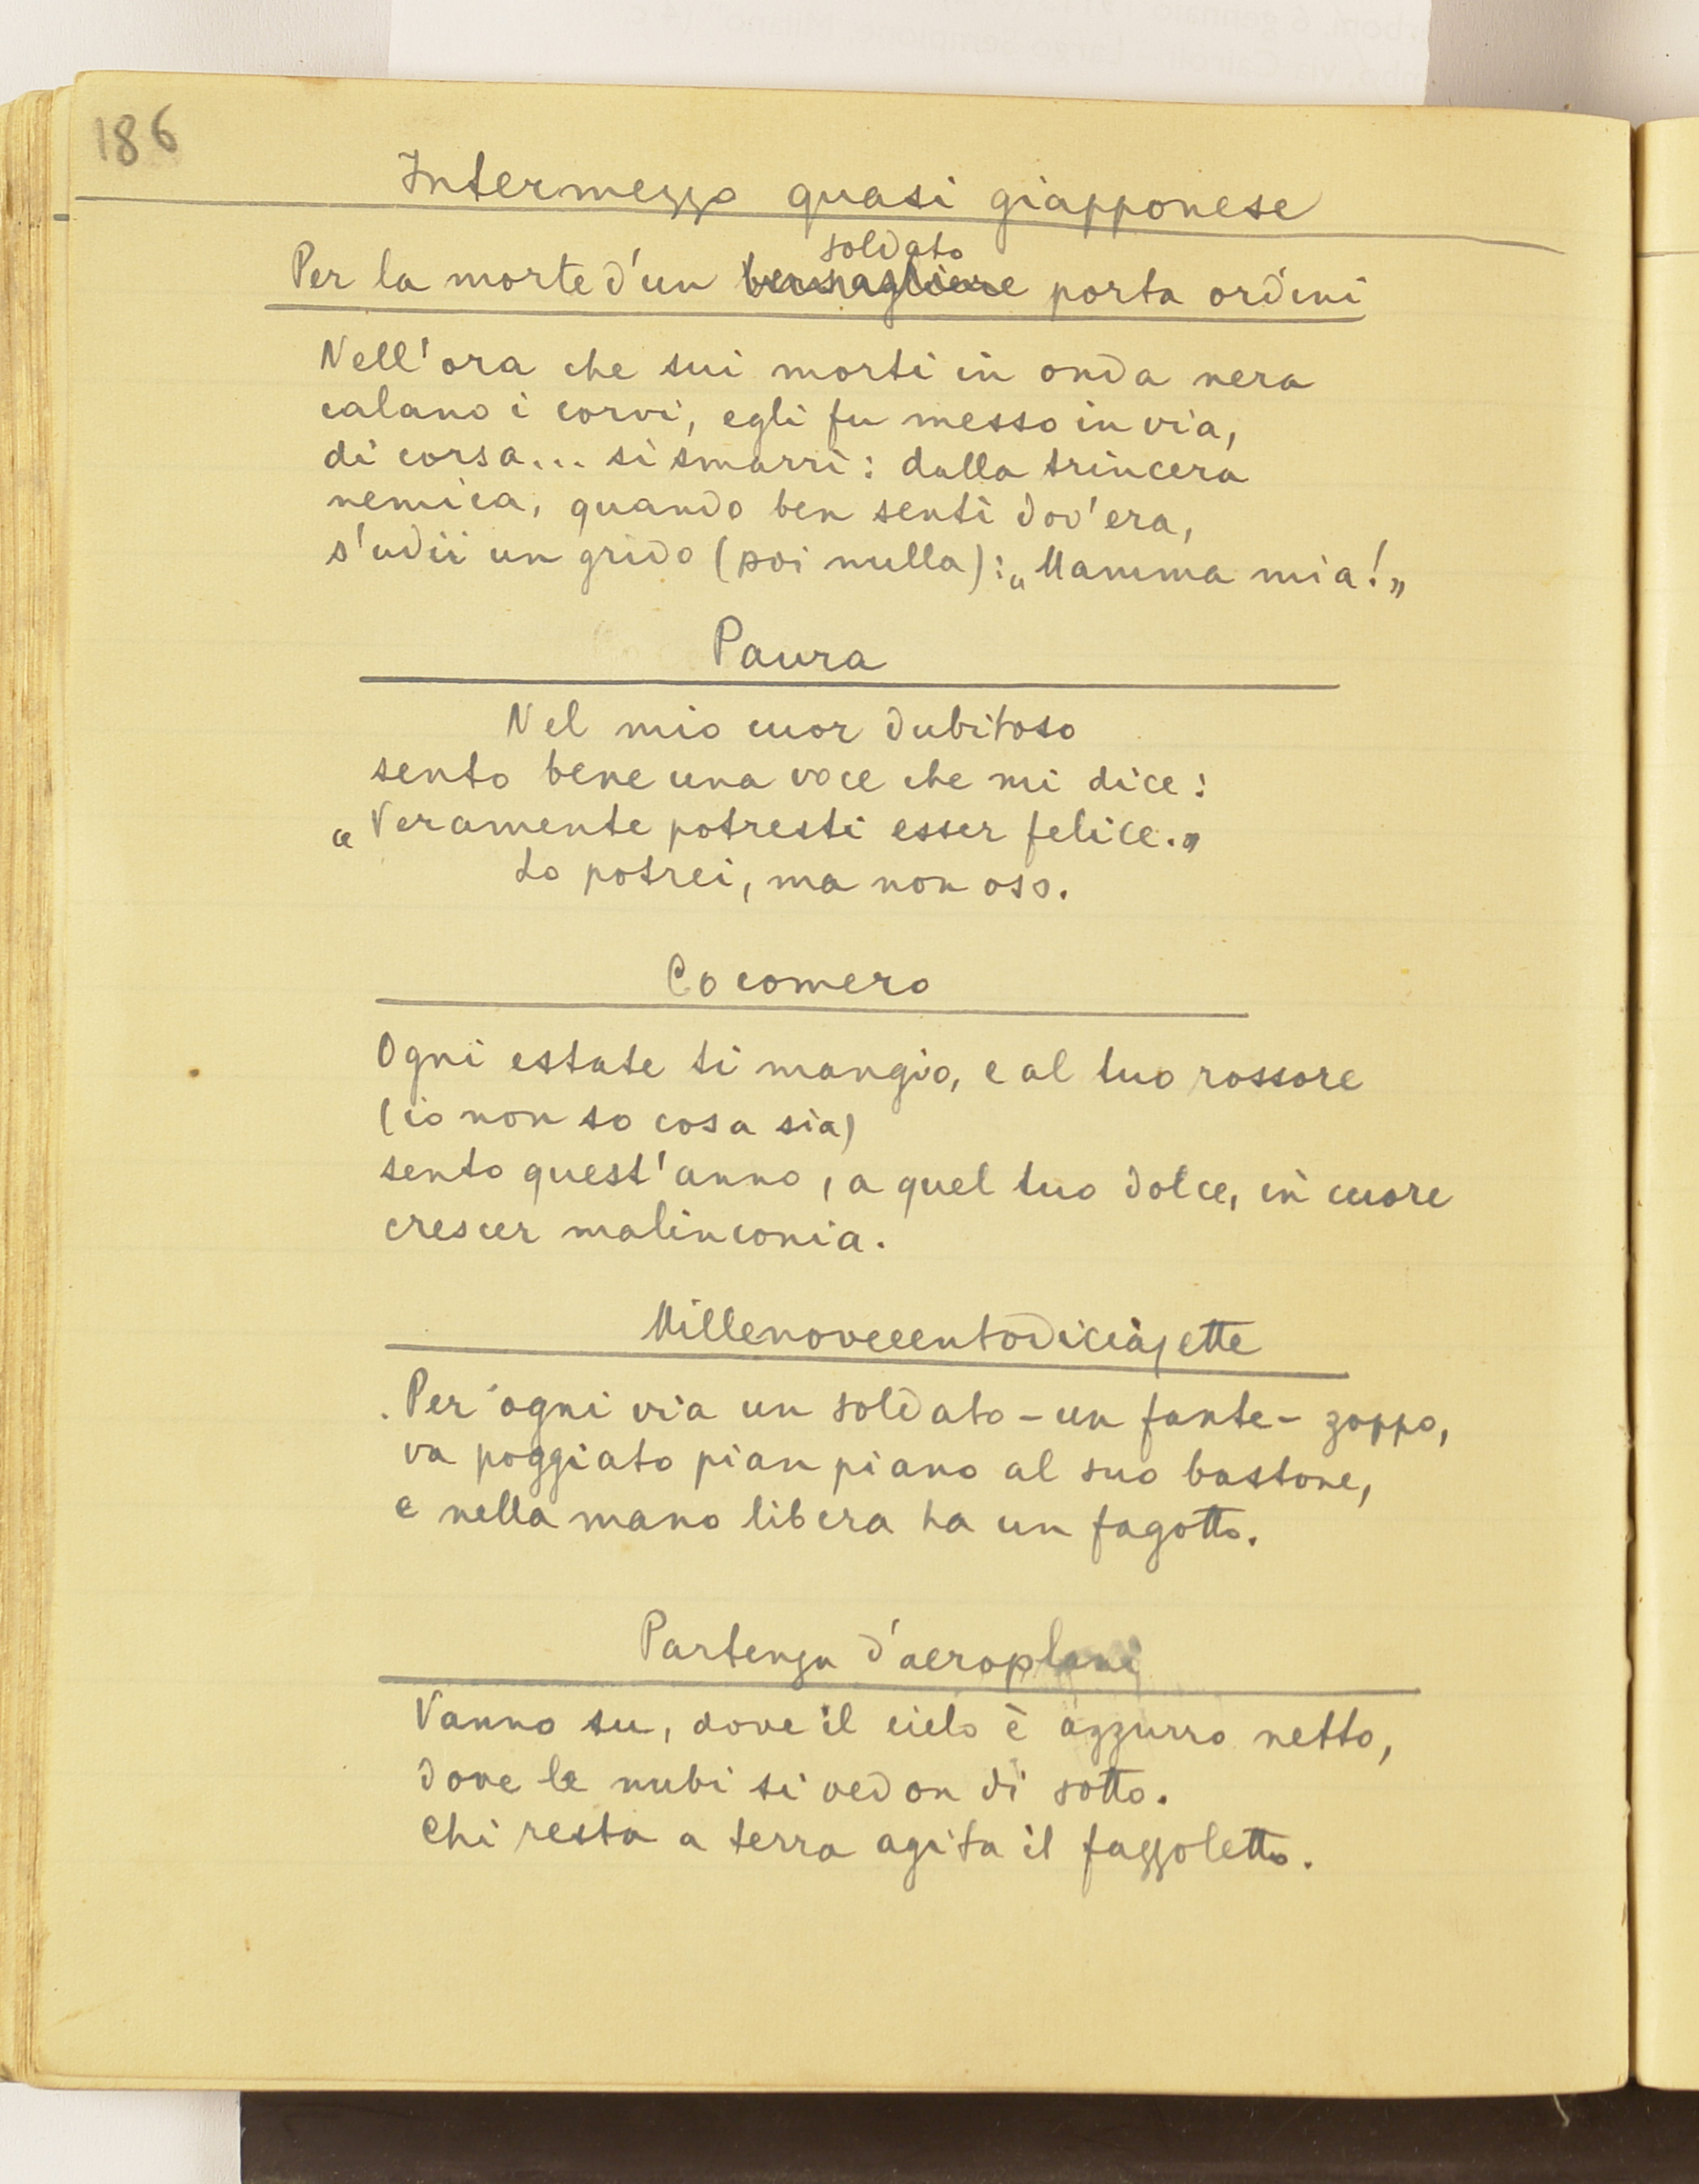 186
Intermezzo quasi giapponese
soldato
Per la morte d'un bersagliere porta ordini
Nell'ora che sui morti in onda nera
calano i corvi, egli fu messo in via,
di corsa... si smarrì: dalla trincera
nemica, quando ben sentì dov'era,
s'udii un grido (poi nulla): „Mamma mia!„
Paura
Nel mio cuor dubitoso
sento bene una voce che mi dice:
„Veramente potresti esser felice.„
Lo potrei, ma non oso.
Cocomero
Ogni estate ti mangio, e al tuo rossore
(io non so cosa sia)
sento quest'anno, a quel tuo dolce, in cuore
crescer malinconia.
Millenovecentodiciasette
Per ogni via un soldato - un fante - zoppo,
va poggiato pian piano al suo bastone,
e nella mano libera ha un fagotto.
Partenza d'aeroplani
Vanno su, dove il cielo è azzurro netto,
dove le nubi si vedon di sotto.
Chi resta a terra agita il fazzoletto.